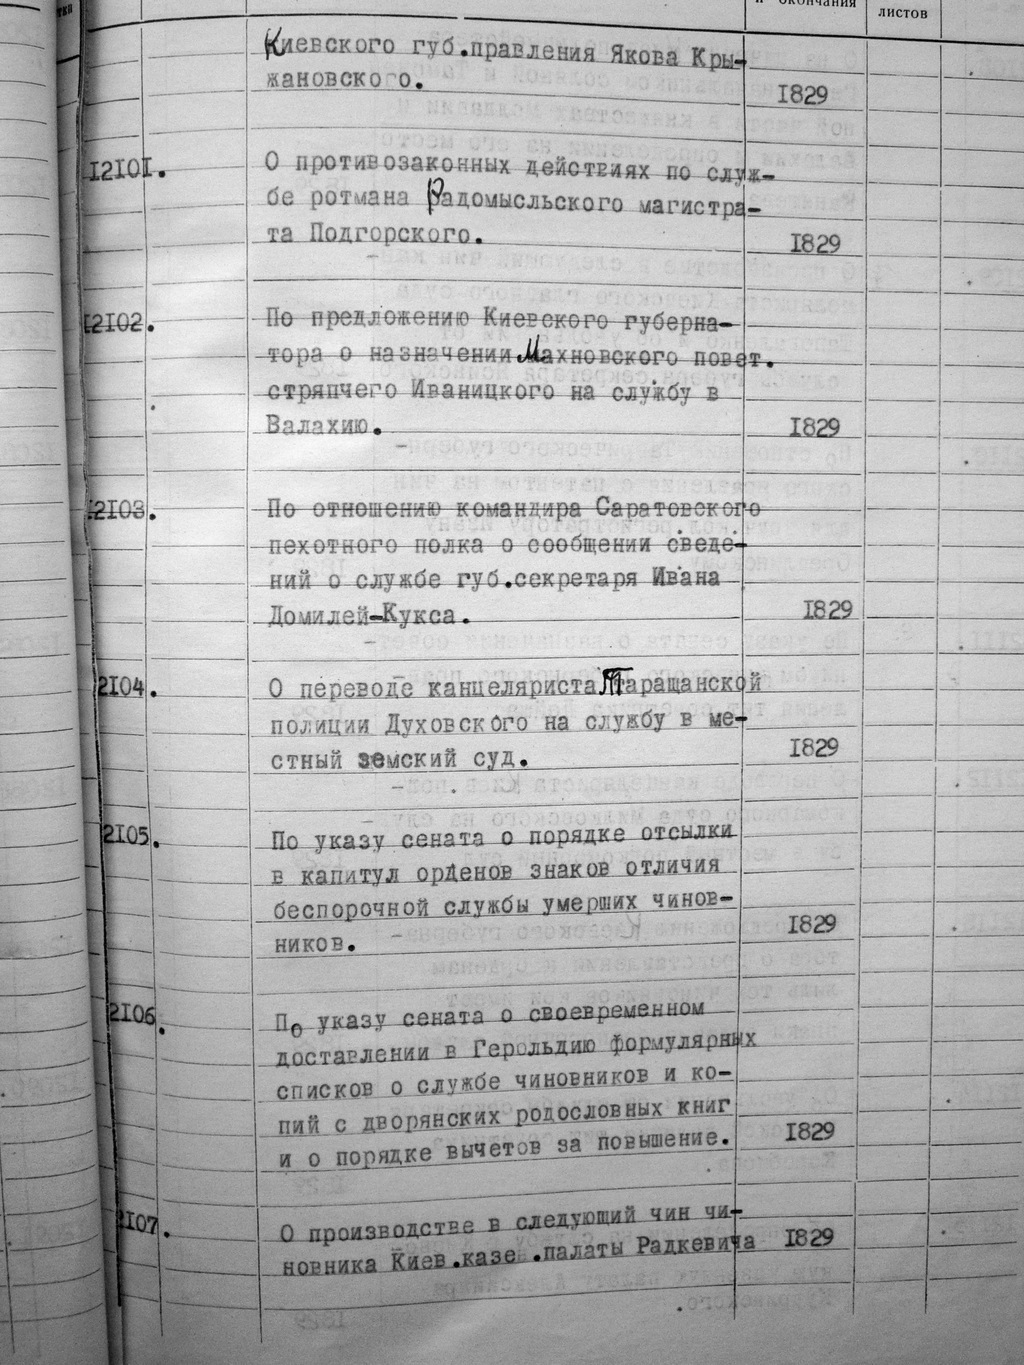 и окончания
листов
Киевского губ.правления Якова Кры-
жановского. 1829
12101. О противозаконных действиях по служ-
бе ротмана Радомысльского магистра-
та Подгорского. 1829
12102. По предложению Киевского губерна-
тора о назначении Махновского повет.
стряпчего Иваницкого на службу в
Валахию. 1829
12103. По отношению командира Саратовского
пехотного полка о сообщении сведе-
ний о службе губ.секретаря Ивана
Домилей-Кукса. 1829
2104. О переводе канцеляриста Таращанской
полиции Духовского на службу в ме-
стный земский суд. 1829
2105. По указу сената о порядке отсылки
в капитул орденов знаков отличия
беспорочной службы умерших чинов-
ников. 1829
2106. По указу сената о своевременном
доставлении в Герольдию формулярных
списков о службе чиновников и ко-
пий с дворянских родословных книг
и о порядке вычетов за повышение. 1829
2107. О производстве в следующий чин чи-
новника Киев.казен.палаты Радкевича 1829